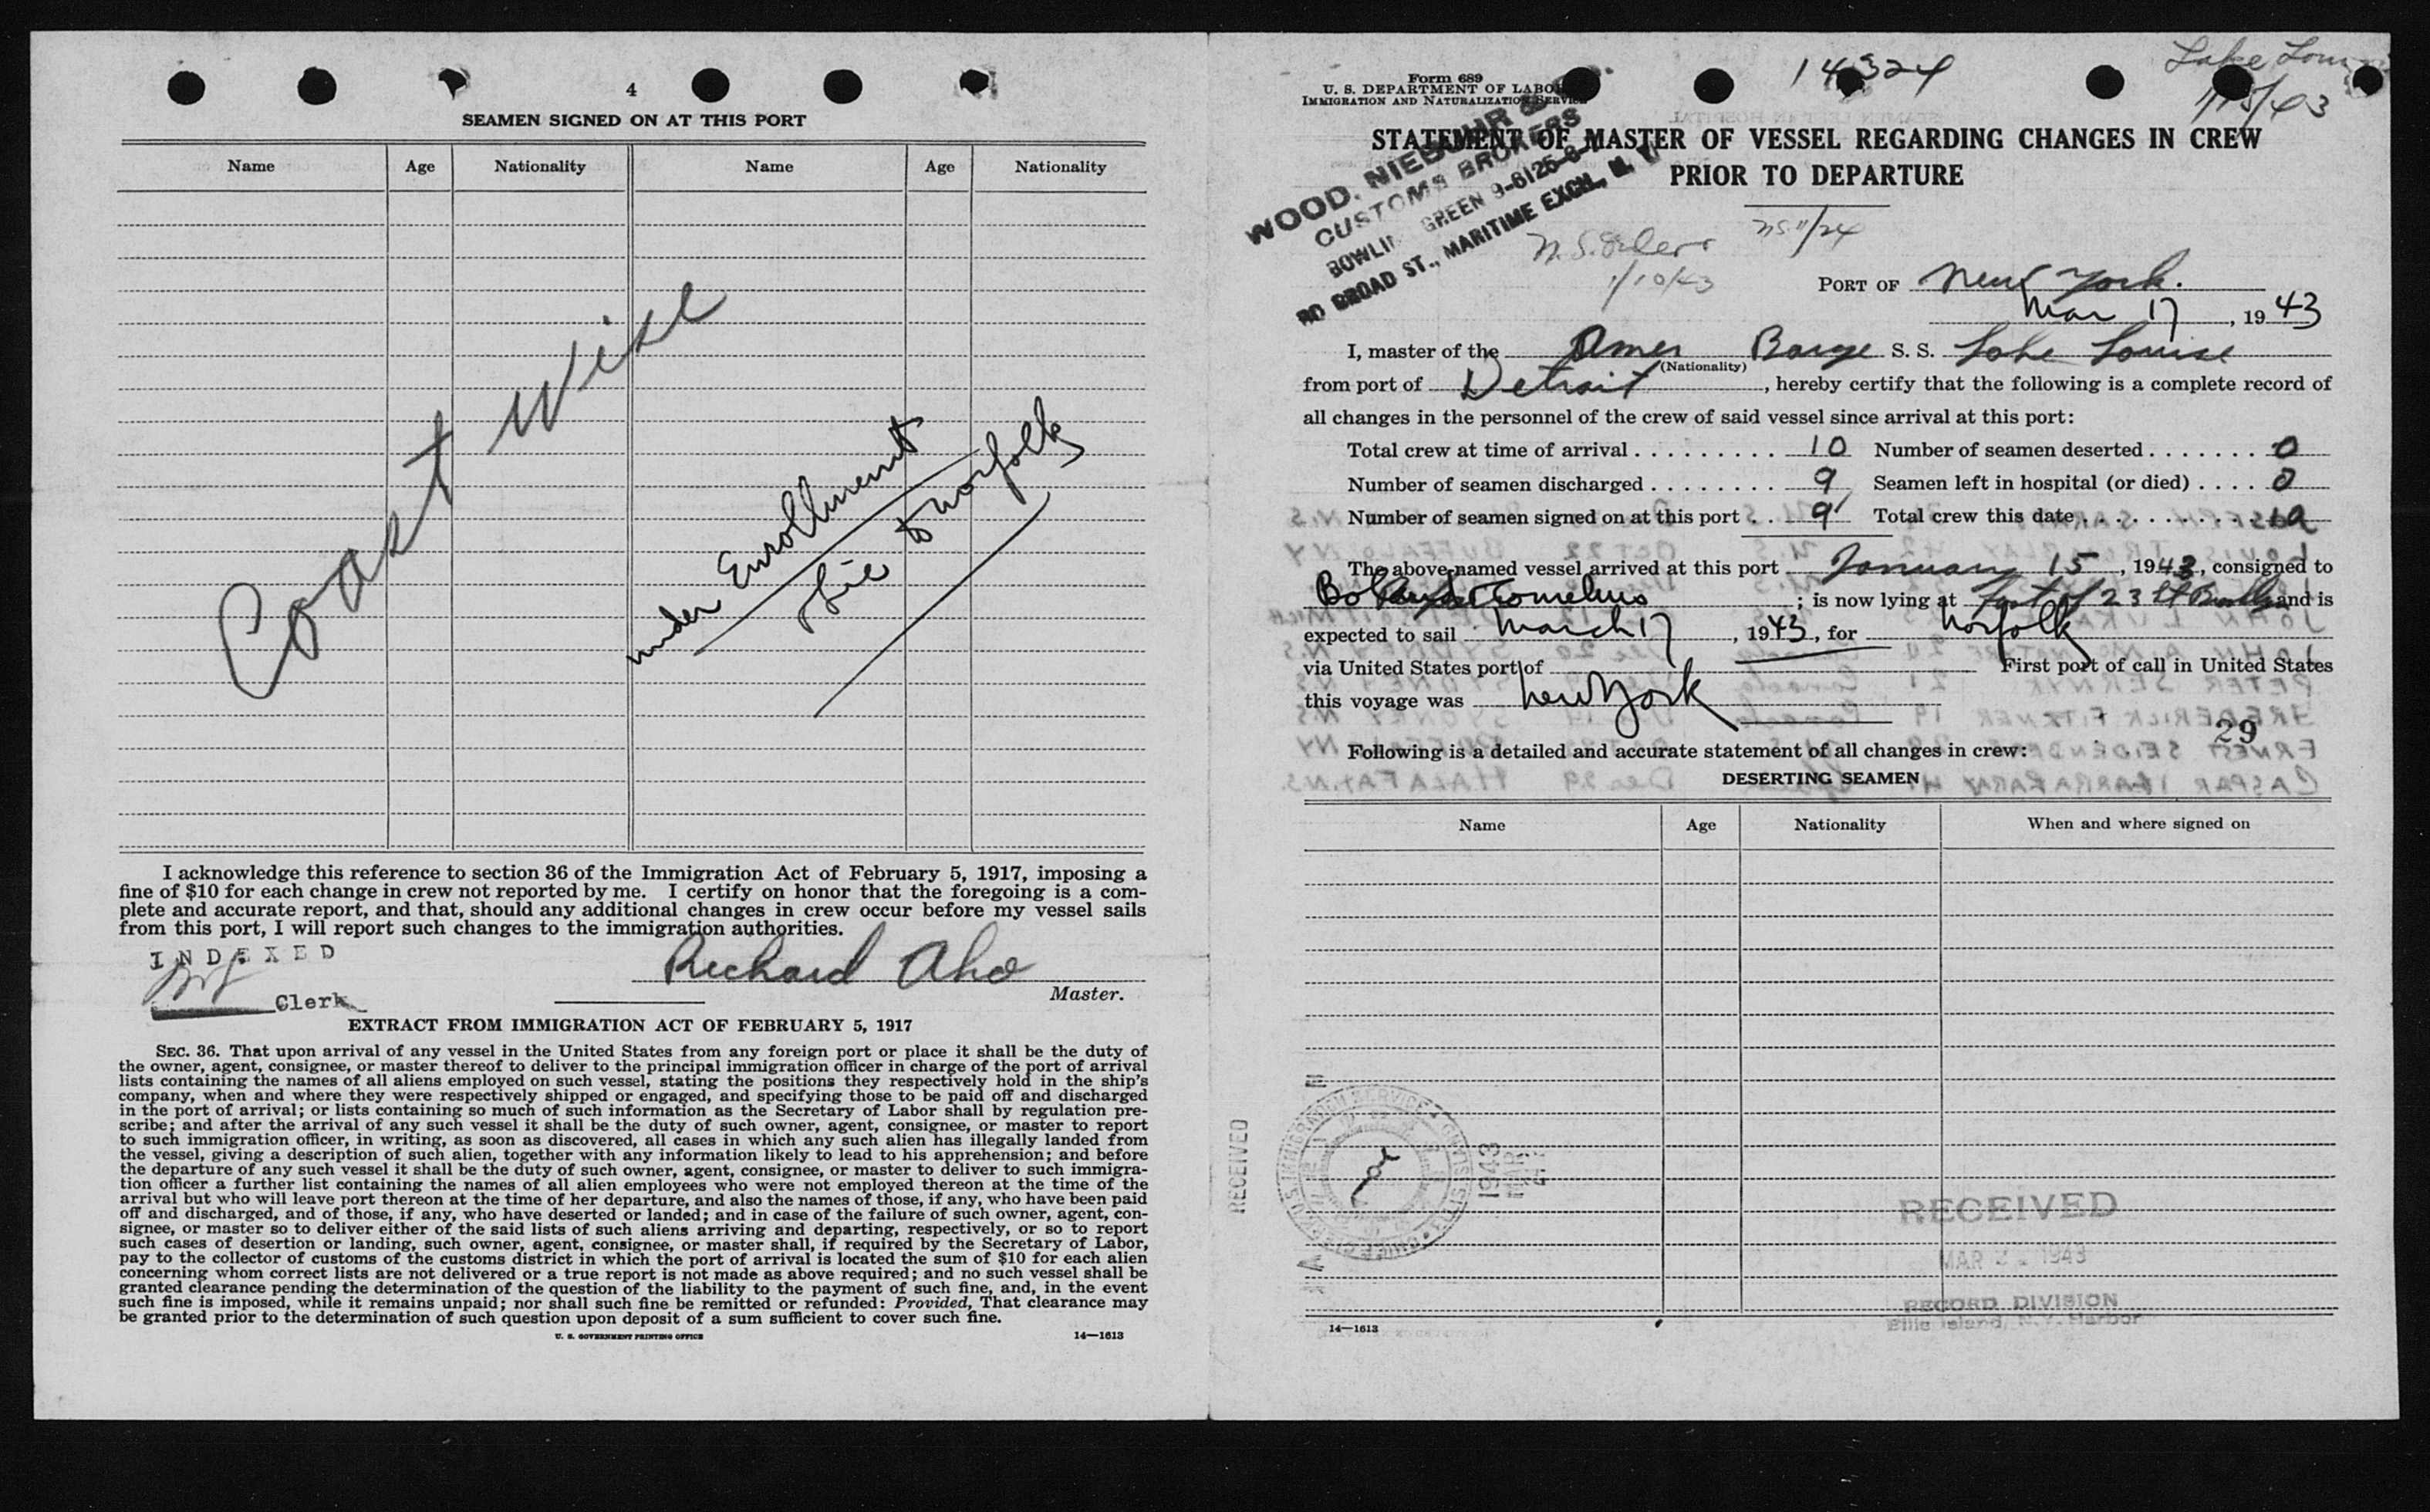 4
SEAMEN SIGNED ON AT THIS PORT
Name Age Nationality Name Age Nationality
Coast Wise
under Enrollment
to Norfolk
I acknowledge this reference to section 36 of the Immigration Act of February 5, 1917, imposing a
fine of $10 for each change in crew not reported by me. I certify on honor that the foregoing is a com-
plete and accurate report, and that, should any additional changes in crew occur before my vessel sails
from this port, I will report such changes to the immigration authorities.
INDEXED
Richard Aho
Clerk
Master.
EXTRACT FROM IMMIGRATION ACT OF FEBRUARY 5, 1917
SEC. 36. That upon arrival of any vessel in the United States from any foreign port or place it shall be the duty of
the owner, agent, consignee, or master thereof to deliver to the principal immigration officer in charge of the port of arrival
lists containing the names of all aliens employed on such vessel, stating the positions they respectively hold in the ship's
company, when and where they were respectively shipped or engaged, and specifying those to be paid off and discharged
in the port of arrival; or lists containing so much of such information as the Secretary of Labor shall by regulation pre-
scribe; and after the arrival of any such vessel it shall be the duty of such owner, agent, consignee, or master to report
to such immigration officer, in writing, as soon as discovered, all cases in which any such alien has illegally landed from
the vessel, giving a description of such alien, together with any information likely to lead to his apprehension; and before
the departure of any such vessel it shall be the duty of such owner, agent, consignee, or master to deliver to such immigra-
tion officer a further list containing the names of all alien employees who were not employed thereon at the time of the
arrival but who will leave port thereon at the time of her departure, and also the names of those, if any, who have been paid
off and discharged, and of those, if any, who have deserted or landed; and in case of the failure of such owner, agent, con-
signee, or master so to deliver either of the said lists of such aliens arriving and departing, respectively, or so to report
such cases of desertion or landing, such owner, agent, consignee, or master shall, if required by the Secretary of Labor,
pay to the collector of customs of the customs district in which the port of arrival is located the sum of $10 for each alien
concerning whom correct lists are not delivered or a true report is not made as above required; and no such vessel shall be
granted clearance pending the determination of the question of the liability to the payment of such fine, and, in the event
such fine is imposed, while it remains unpaid; nor shall such fine be remitted or refunded: Provided, That clearance may
be granted prior to the determination of such question upon deposit of a sum sufficient to cover such fine.
U. S. GOVERNMENT PRINTING OFFICE 14—1613
Form 689
U. S. DEPARTMENT OF LABOR
IMMIGRATION AND NATURALIZATION SERVICE
14324
Lake Louise
1/15/43
STATEMENT OF MASTER OF VESSEL REGARDING CHANGES IN CREW
PRIOR TO DEPARTURE
WOOD, NIEBUHR &
CUSTOMS BROKERS
GREEN 9-6125-6-
BROAD ST., MARITIME EXCH., N. Y.
1/10/43
PORT OF New York.
Mar 17, 1943
I, master of the Amer Barge S. S. Lake Louise
(Nationality)
from port of Detroit, hereby certify that the following is a complete record of
all changes in the personnel of the crew of said vessel since arrival at this port:
Total crew at time of arrival 10 Number of seamen deserted 0
Number of seamen discharged 9 Seamen left in hospital (or died) 0
Number of seamen signed on at this port 9 Total crew this date 10
The above-named vessel arrived at this port January 15, 1943, consigned to
; is now lying at Foot of 23 St and is
expected to sail March 17, 1943, for Norfolk
via United States port of First port of call in United States
this voyage was New York
29
Following is a detailed and accurate statement of all changes in crew:
DESERTING SEAMEN
Name Age Nationality When and where signed on
RECEIVED
1943
MAR
RECEIVED
MAR 1943
RECORD DIVISION
Ellis Island, N. Y. Harbor
14—1613